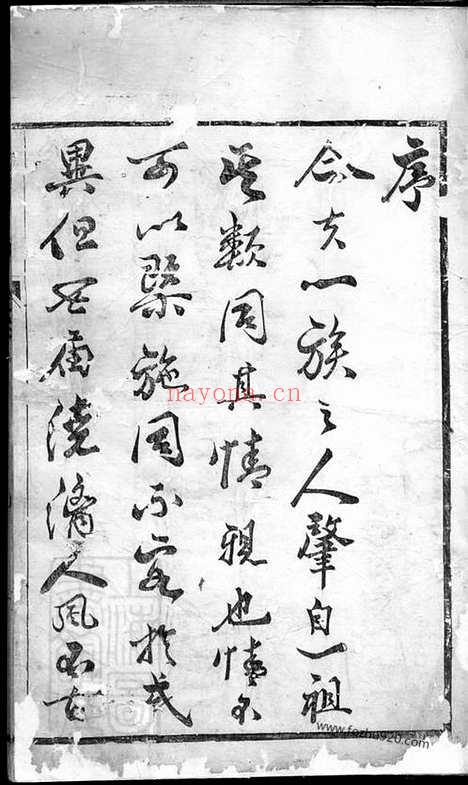 序
今夫一族之人肇自一祖
其類同其情親也情不
可以槩施同不容於或
異但世風澆漓人風不古
nayona.cn
www.fozhu920.com